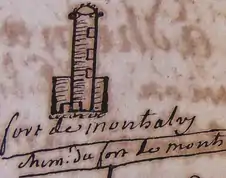 fort de monthalvy
chem.ⁿ du fort de month